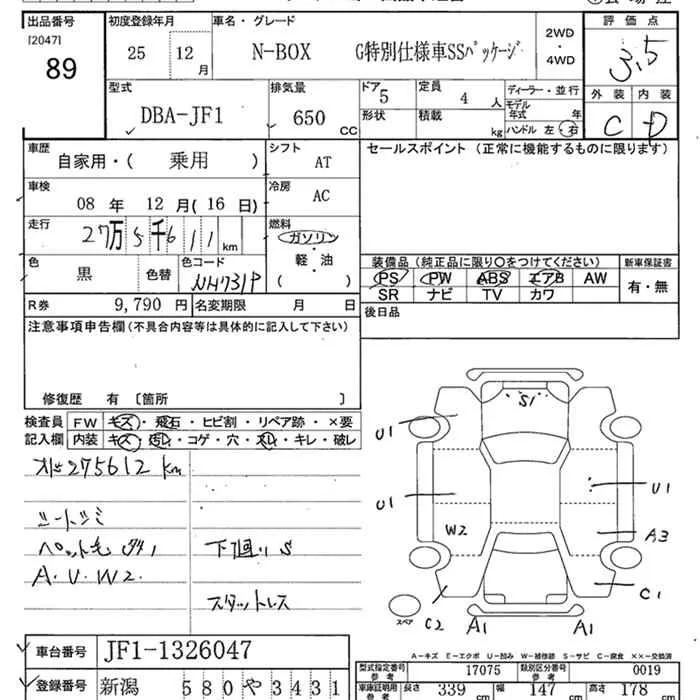 出品番号 初度登録年月 車名・グレード 2WD・4WD 評価点
[2047]
89
25 12月 N-BOX G特別仕様車SSパッケージ
3.5
型式 排気量 ドア 5 定員 4人 ディーラー・並行 外装 内装
DBA-JF1 650 CC 形状 積載 kg モデル年式 年 C D
ハンドル 左・右
車歴 シフト セールスポイント (正常に機能するものに限ります)
自家用・( 乗用 ) AT
車検 冷房
08年 12月(16日) AC
走行 燃料
27万5千611km ガソリン
軽・油
( )
色 色替 色コード
黒 NH731P
装備品 (純正品に限り○をつけてください) 新車保証書
PS PW ABS エアB AW 有・無
SR ナビ TV カワ
R券 9,790円 名変期限 月 日
後日品
注意事項申告欄(不具合内容等は具体的に記入して下さい)
修復歴 有 〔箇所 〕
検査員 FW キズ・飛石・ヒビ割・リペア跡・×要
記入欄 内装 キズ・汚れ・コゲ・穴・スレ・キレ・破レ
275612 km
シートシミ
ペット毛
A.U.W2.
下廻りS
スタットレス
S1
U1
U1
U1
W2
A3
C1
C2
A1
A1
スペア
A-キズ E-エクボ U-凹み W-補修跡 S-サビ C-腐食 XX-交換済
車台番号 JF1-1326047
登録番号 新潟 580 や 3431
型式指定番号 参考 17075 類別区分番号 参考 0019
車庫証明用 参考 長さ 339cm 幅 147cm 高さ 178cm